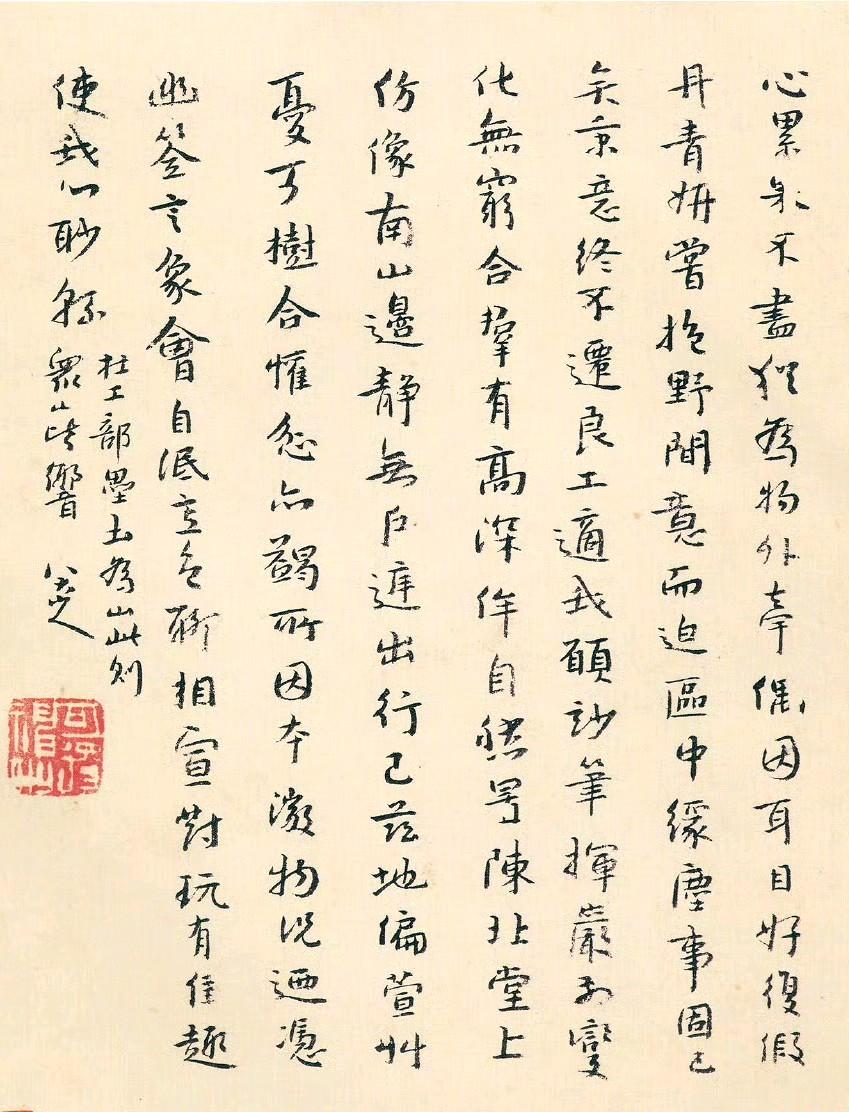 心累果不盡猶為物外牽偶因耳目好復假
丹青妍嘗抱野間意而迫區中緣塵事固已
矣意終不遷良工適我願玅筆揮變
化無窮合羣有高深侔自然陳北堂上
仿像南山邊靜無戶庭出行已茲地偏萱艸
憂可樹合懽忿亦蠲所因本微物況迺憑
幽筌言象會自泯意色聊相宣對玩有佳趣
使我心眇緜
杜工部壘土為山此則
眾山皆響 八大山人